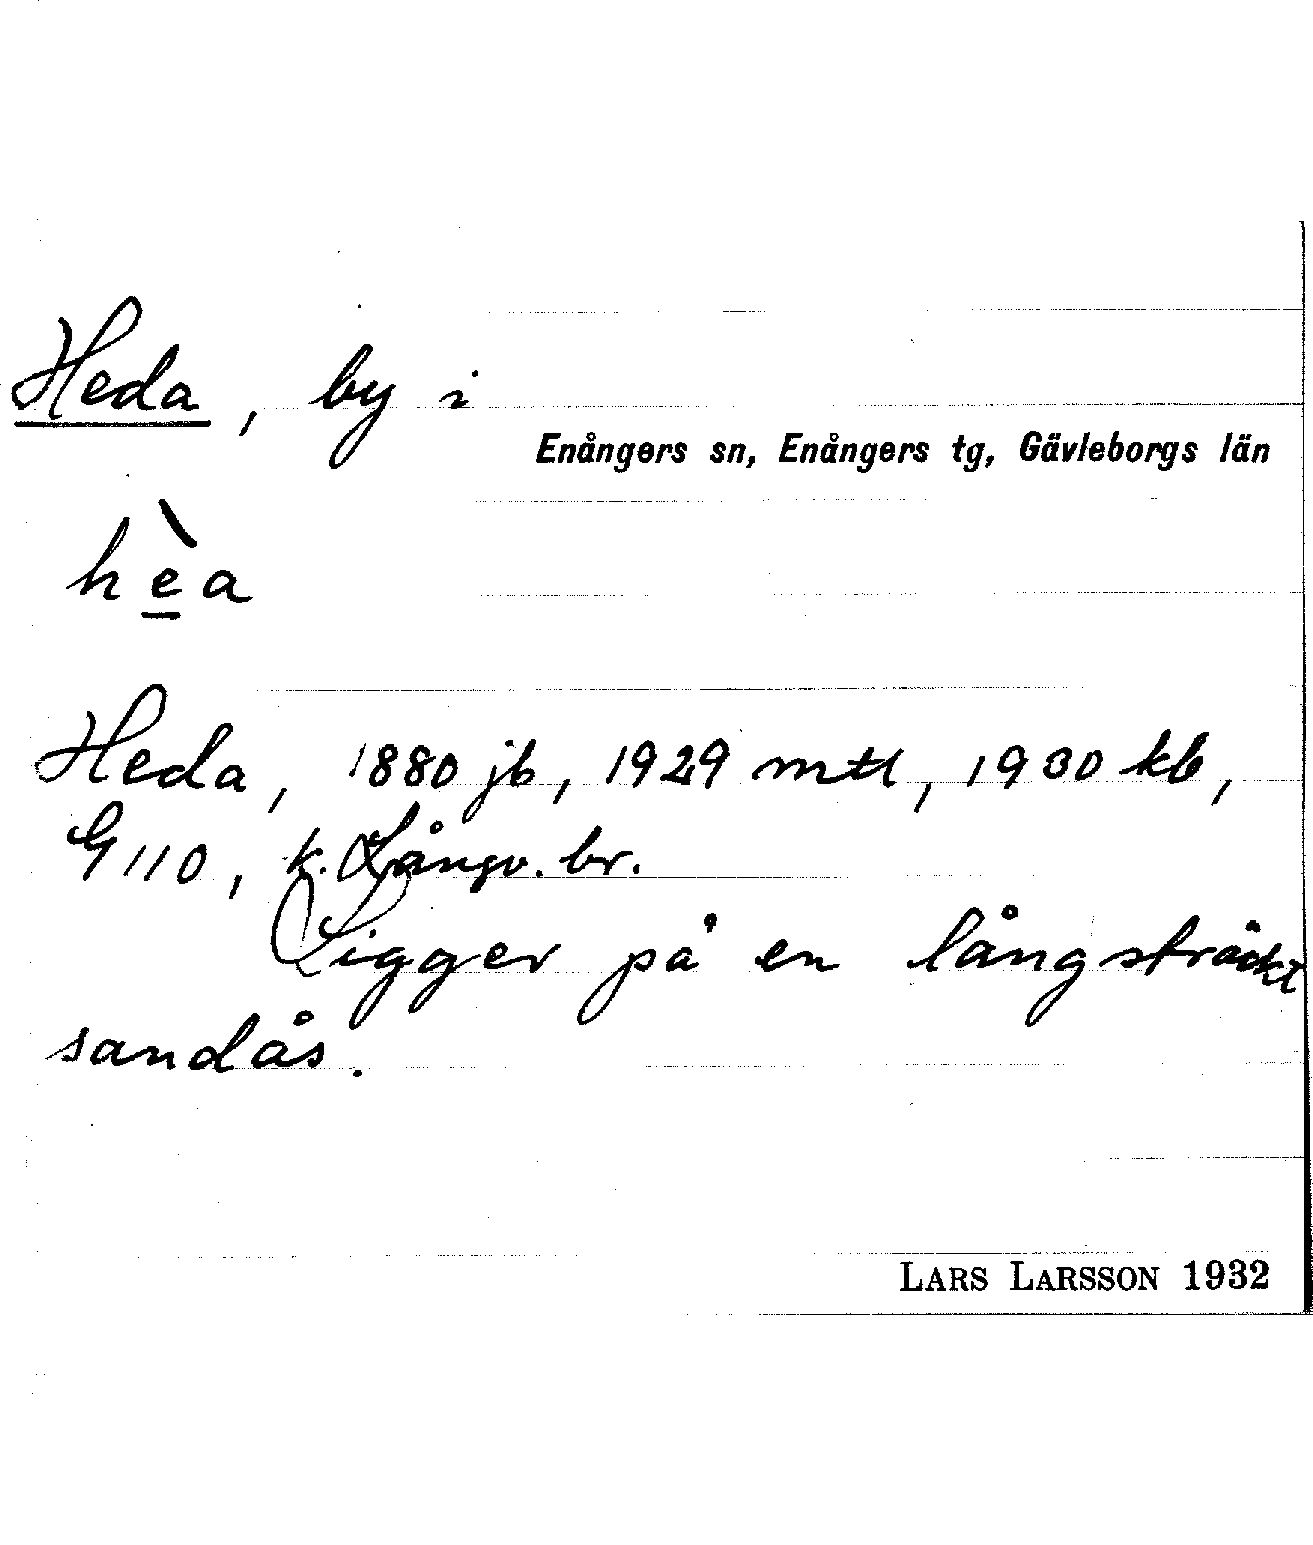 Heda, by i
Enångers sn, Enångers tg, Gävleborgs län
hèa
Heda, 1880 jb, 1929 mtl, 1930 kb,
G 110, k. Långv. br.
Ligger på en långsträckt
sandås.
LARS LARSSON 1932